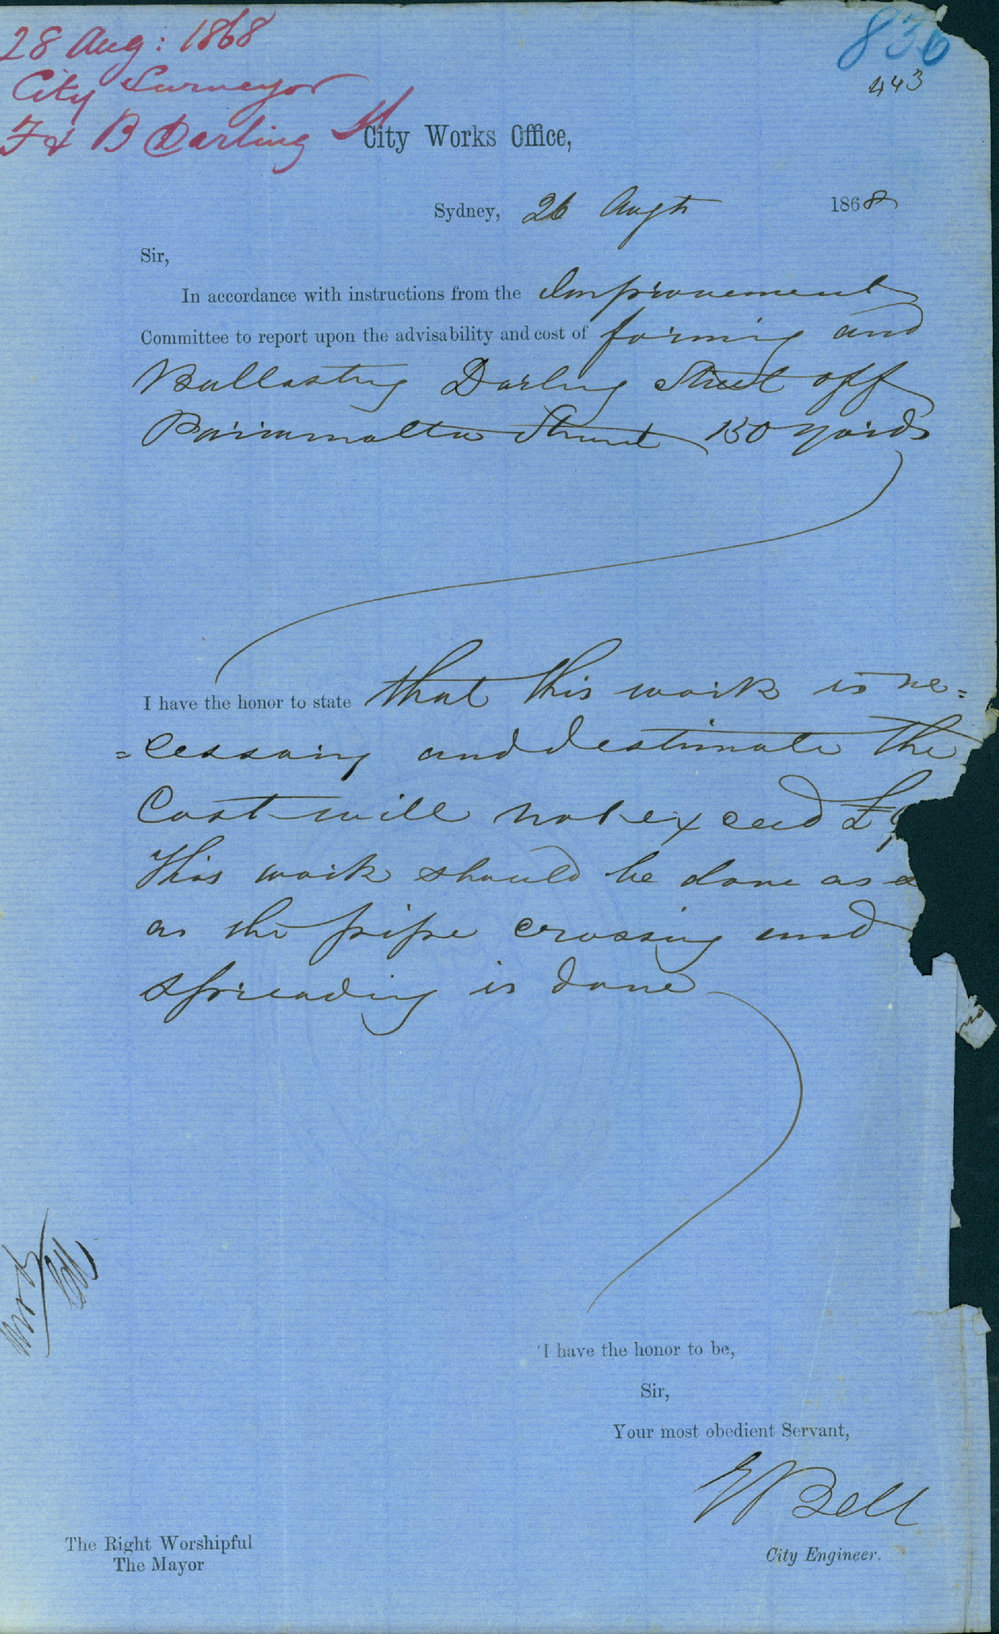 28 Aug: 1868
City Surveyor
F & B Darling St
836
443
City Works Office,
Sydney, 26 Augt 1868
Sir,
In accordance with instructions from the Improvement
Committee to report upon the advisability and cost of forming and
Ballasting Darling Street off
Parramatta Street 150 yards
I have the honor to state that this work is ne=
=cessary and I estimate the
Cost will not exceed £9
This work should be done as
as the pipe crossing and
spreading is done
I have the honor to be,
Sir,
Your most obedient Servant,
E Bell
City Engineer.
The Right Worshipful
The Mayor